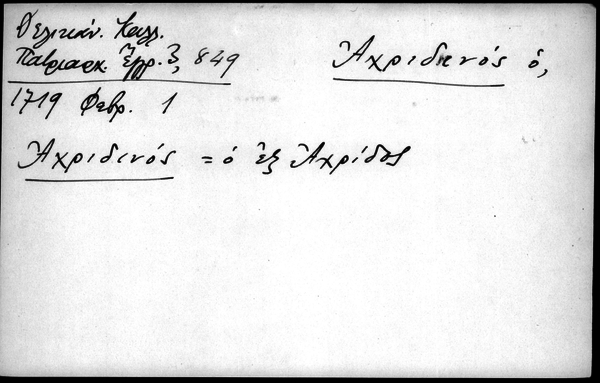 Δελικάν. Καλλ.
Πατριαρχ. Ἔγγρ. 3, 849
Ἀχριδηνός ὁ,
1719 Φεβρ. 1
Ἀχριδινός = ὁ ἐξ Ἀχρίδος